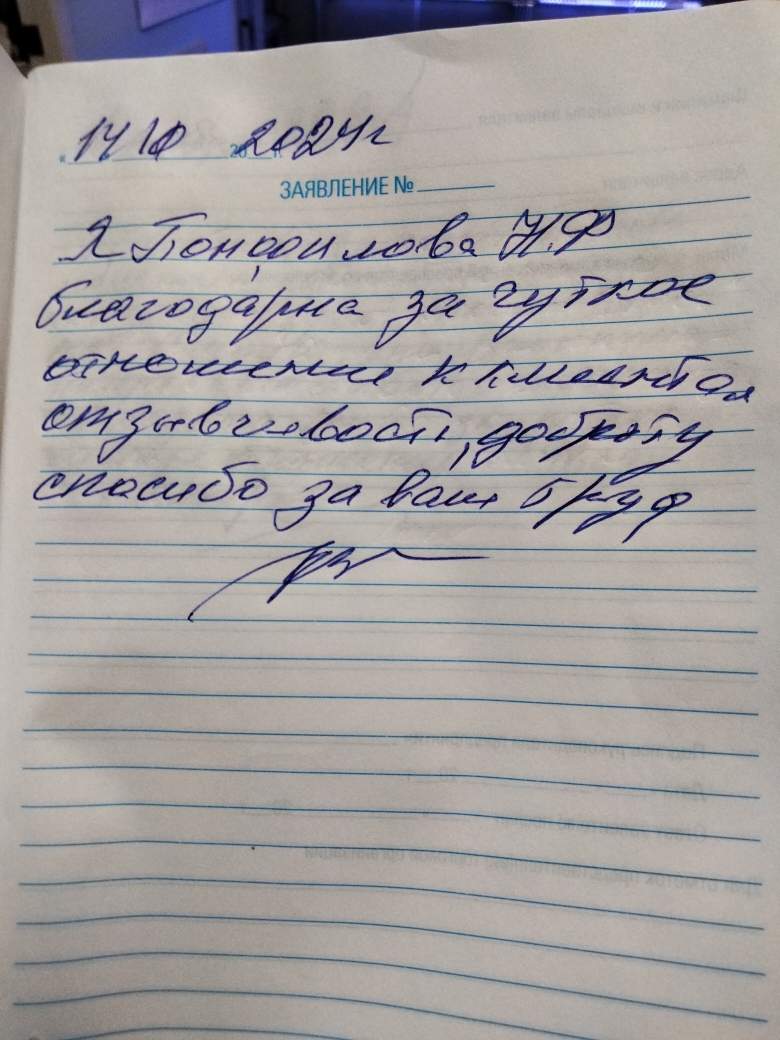 14 10 2024г
ЗАЯВЛЕНИЕ №
Я Н.Ф
благодарна за чуткое
отношение к клиентам
отзывчивость, доброту
спасибо за ваш труд